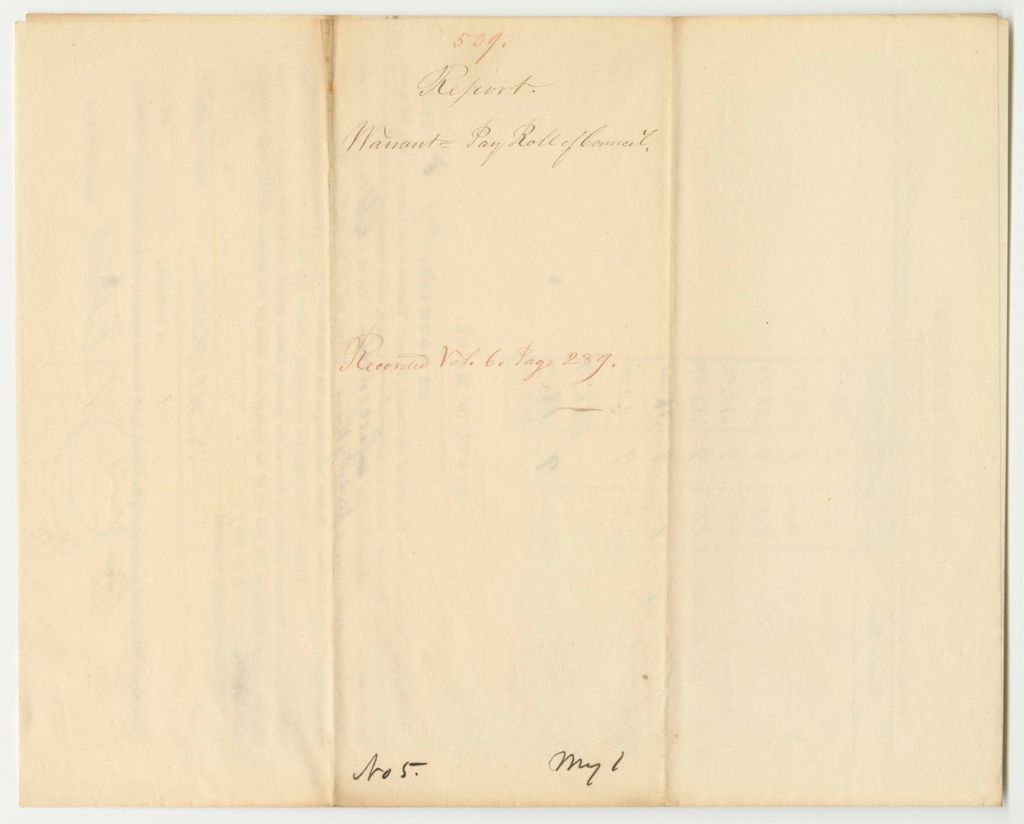 539.
Report.
Warrant = Pay Roll of Council.
Recorded Vol. 6. Page 289.
No 5.
My 1